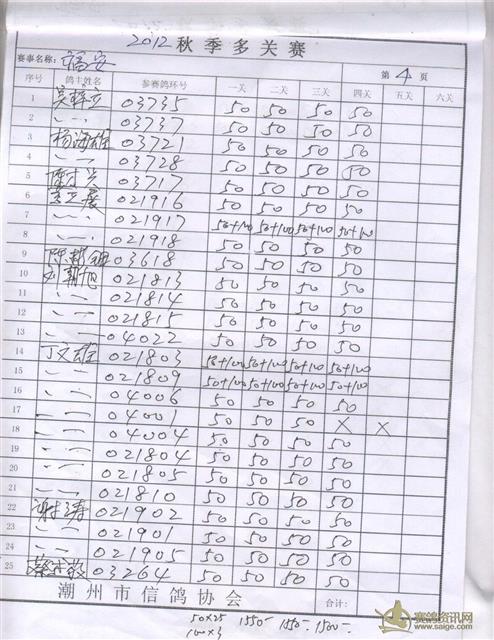 2012 秋季多关赛
赛事名称: 福安 第 4 页
序号 鸽主姓名 参赛鸽环号 一关 二关 三关 四关 五关 六关
1 03735 50 50 50 50
2 〃 03737 50 50 50 50
3 杨海雄 03721 50 50 50 50
4 〃 03728 50 50 50 50
5 03717 50 50 50 50
6 021916 50 50 50 50
7 〃 021917 50+100 50+100 50+100 50+100
8 〃 021918 50 50 50 50
9 03618 50 50 50 50
10 刘朝旭 021813 50 50 50 50
11 〃 021814 50 50 50 50
12 〃 021815 50 50 50 50
13 〃 04022 50 50 50 50
14 丁文雄 021803 50+100 50+100 50+100 50+100
15 〃 021809 50+100 50+100 50+100 50+100
16 〃 04006 50 50 50 50
17 〃 04001 50 50 50 X X
18 〃 04004 50 50 50 50
19 〃 021804 50 50 50 50
20 〃 021805 50 50 50 50
21 〃 021810 50 50 50 50
22 021902 50 50 50 50
23 〃 021901 50 50 50 50
24 〃 021905 50 50 50 50
25 03264 50 50 50 50
潮州市信鸽协会 合计:
50×25 1550- 1550- 1500-
100×3
赛鸽资讯网
www.saige.com